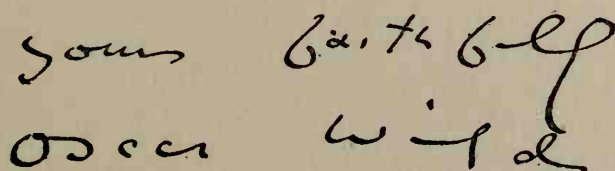 yours faithfully
Oscar Wilde